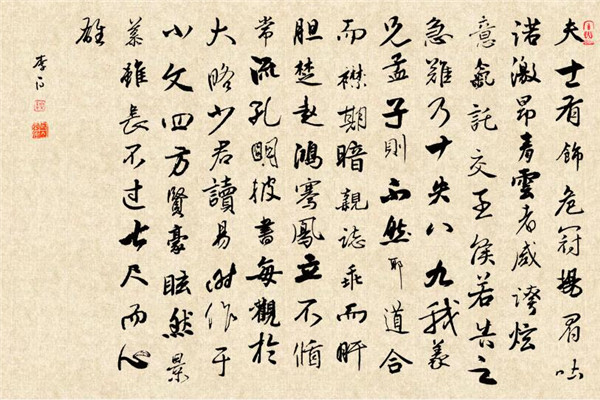 夫士有飾危冠揚眉吐
諾激昂青雲者咸誇炫
意氣託交王侯若告之
急難乃十失八九我義
兄孟子則不然耶道合
而襟期暗親誌乖而肝
胆楚越鴻騫鳳立不循
常流孔明披書每觀於
大略少君讀易時作于
小文四方賢豪眩然景
慕雖長不过七尺而心
雄
李白